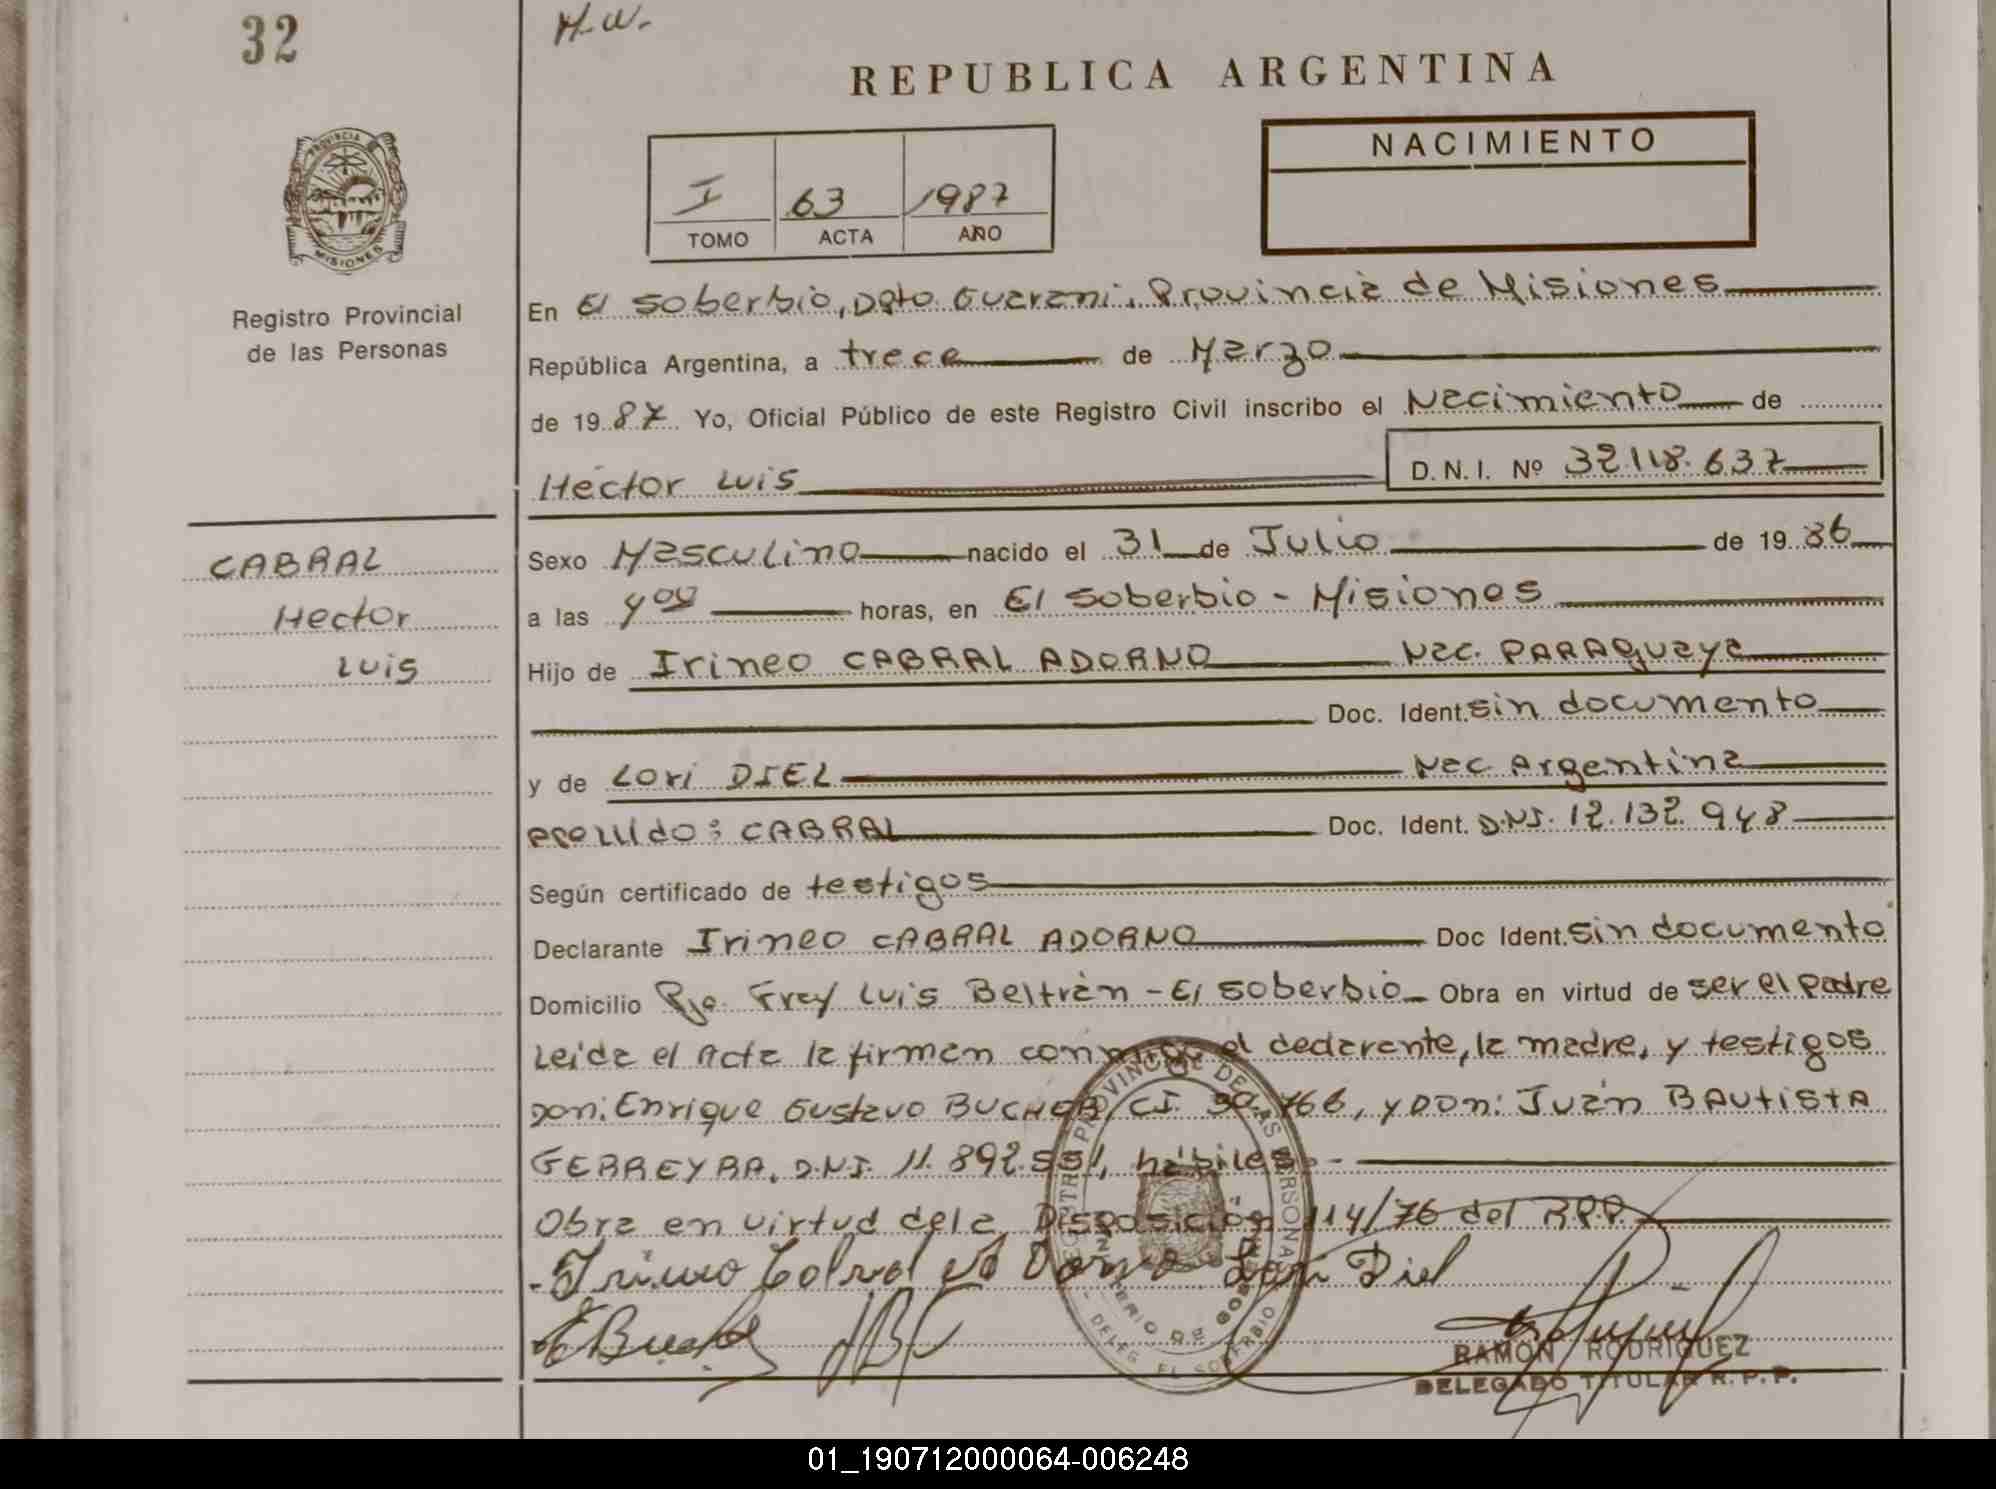 32
H.W.
REPUBLICA ARGENTINA
I 63 1987
TOMO ACTA AÑO
NACIMIENTO
PROVINCIA
MISIONES
Registro Provincial
de las Personas
En El Soberbio, Dpto Guarani, Provincia de Misiones
República Argentina, a trece de Marzo
de 1987 Yo, Oficial Público de este Registro Civil inscribo el Nacimiento de
Héctor Luis D.N.I. Nº 32.118.637
CABRAL
Hector
Luis
Sexo Masculino nacido el 31 de Julio de 1986
a las 4 horas, en El Soberbio - Misiones
Hijo de Irineo CABRAL ADORNO Nac. PARAguaya
Doc. Ident. sin documento
y de Lori DIEL Nac Argentina
apellido: CABRAL Doc. Ident. D.N.I. 12.132.948
Según certificado de testigos
Declarante Irineo CABRAL ADORNO Doc Ident. sin documento
Domicilio Pje. Fray Luis Beltràn - El Soberbio Obra en virtud de ser el padre
Leida el Acta la firman con el declarante, la madre, y testigos
Don: Enrique Gustavo BUCHER, C.I. 766, y Don: Juàn BAutistA
GERREYRA, D.N.I. 11.892.551, hàbiles.-
Obra en virtud dela Disposición 114/76 del R.P.P.
Lori Diel
REGISTRO PROVINCIAL DE LAS PERSONAS
MINISTERIO DE GOBIERNO
- DELEG. EL SOBERBIO
RAMON RODRIGUEZ
DELEGADO TITULAR R.P.P.
01_190712000064-006248